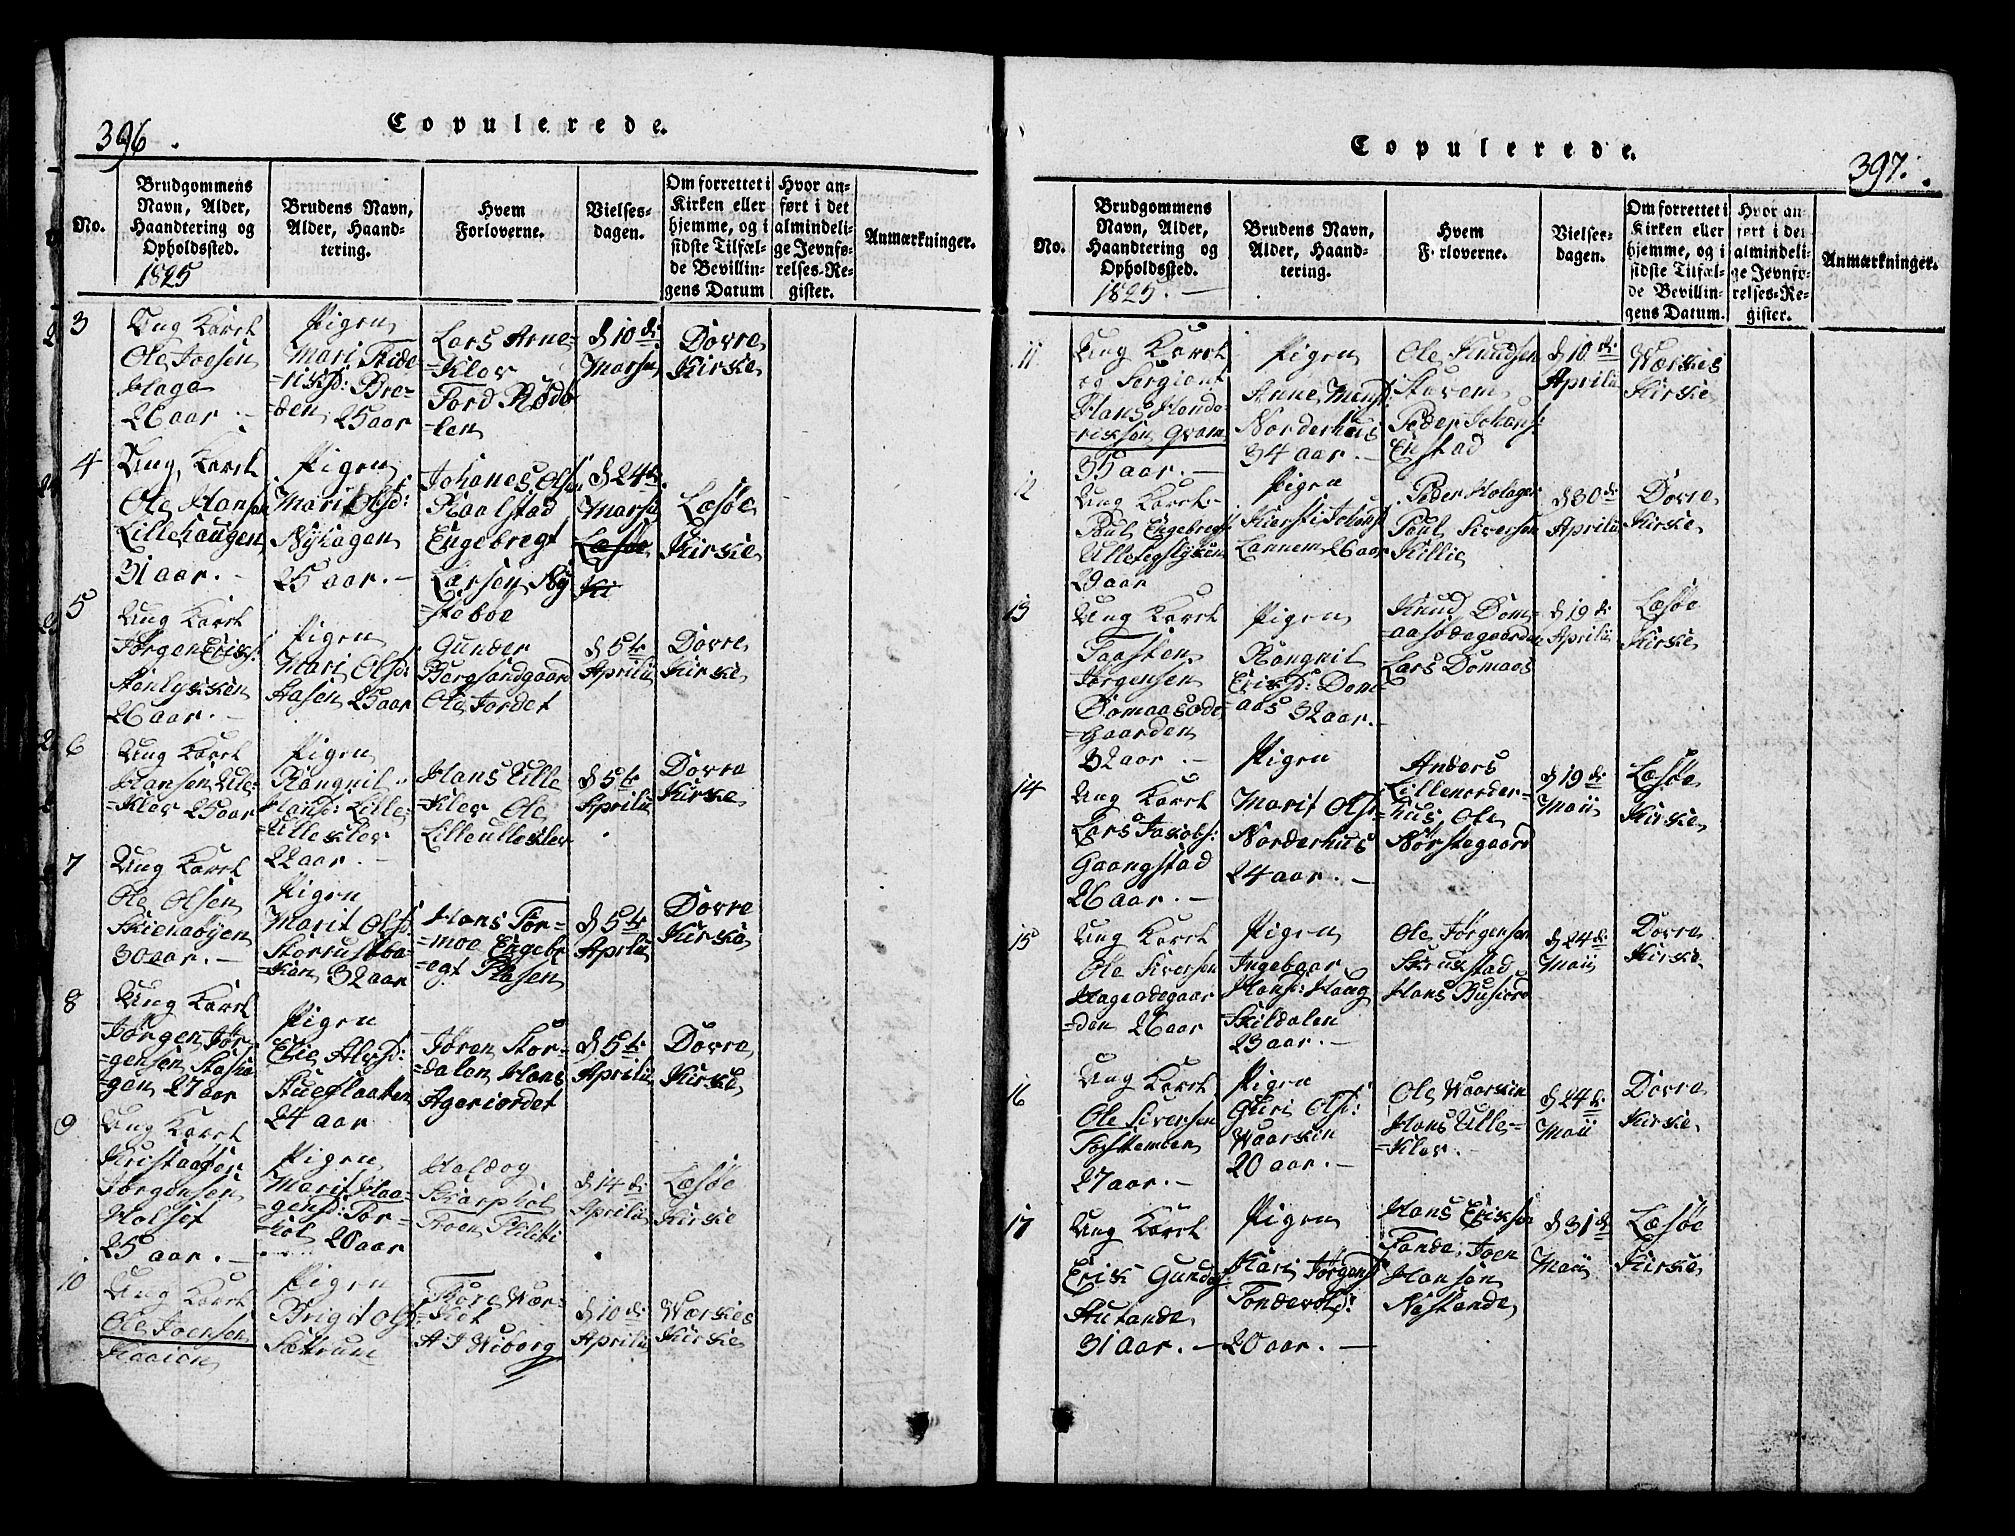 396.
Copulerede.
No.
Brudgommens
Navn, Alder,
Haandtering og
Opholdssted.
1825
Brudens Navn,
Alder, Haand-
tering.
Hvem
Forloverne.
Vielses-
dagen.
Om forrettet i
Kirken eller
hjemme, og i
sidste Tilfæl-
de Bevillin-
gens Datum
Hvor an-
ført i det
almindeli-
ge Jevnfø-
relses-Re-
gister.
Anmærkninger.
3
Ung Karel
Ole Joesen
Hage
26 aar. -
Pigen
Mari Fride-
=riksd: Bre-
=den 25 aar
Lars Arne-
=Klev
Tord Rødø
=len
d 10 de
Marsii
Dovre
Kirke
4
Ung Karel
Ole Hansen
Lillehaugen
31 aar. -
Pigen
Marit Olsd:
Nyhagen
25 aar. -
Johanes Olsen
Raalstad
Engebregt
Larsen Ny
=staboe
d 24 de
Marsii
Læsøe
Ki
Læsøe
Kirke
5
Ung Karel
Jørgen Eriks:
26 aar. -
Pigen
Mari Olsd:
Aasen 25 aar
Gunder
Bergsandgaard
Ole Jordet
d 5 te
Aprilii
Dovre
Kirke
6
Ung Karel
Hansen Ule-
=Klev 25 aar
Pigen
Rangnil
Hansd: Lille-
=Ulleklev
22 aar. -
Hans Ulle
=Klev Ole
Lilleulleklev
d 5 te
Aprilii
Dovre
Kirke
7
Ung Karel
Ole Olsen
Skienaøyen
30 aar. -
Pigen
Marit Olsd:
Storrustba-
=Ken 32 aar
Hans Tor-
=moe Engebr
=egt Plasen
d 5 te
Aprilii
Dovre
Kirke
8
Ung Karel
Jørgen Jør-
=gensen
=gen 27 aar
Pigen
Elie Alvsd:
Stueflaaten
24 aar
Jøren Stor-
=dalen Hans
Ageriordet
d 5 te
Aprilii
Dovre
Kirke
9
Ung Karel
Kristaafer
Jørgensen
Holset
25 aar. -
Pigen
Marit Haa-
=gensd: Tor-
=Hol 20 aar
Haldog
Skarphol
Troen
d 14 de
Aprilii
Læsøe
Kirke
10
Ung Karel
Ole Joensen
Haaien
Pigen
Brigit Olsd:
Sætrum
Tore Wær-
=Ket
A J Wiborg
d 10 de
Aprilii
Wærkes
Kirke
Copulerede.
397.
No.
Brudgommens
Navn, Alder,
Haandtering og
Opholdssted.
1825. -
Brudens Navn,
Alder, Haand-
tering.
Hvem
Forloverne.
Vielses-
dagen.
Om forrettet i
Kirken eller
hjemme, og i
sidste Tilfæl-
de Bevillin-
gens Datum.
Hvor an
ført i det
almindeli-
ge Jevnfø-
relses-Re-
gister.
Anmærkninger.
11
Ung Karel
og Sergiant
Hans Hend-
=riksen Qvam
35 aar. -
Pigen
Anne
Norderhuus
34 aar. -
Ole Knudsen
Stavem
Peder Johans:
Enstad
d 10 de
Aprilii
Wærkes
Kirke
12
Ung Karel -
Poul Engebregt
29 aar
Pigen
Kiersti Johansd
Lannem 26 aar
Peder Holager
Poul Siversen
Killie
d 30 de
Aprilii
Dovre
Kirke
13
Ung Karel
Taasten
Jørgensen
Domaasøde
=gaarden
32 aar. -
Pigen
Rangnil
Eriksd: Dom-
=aas 32 aar. -
Knud Dom-
=aasødegaarden
Lars Domaas
d 19 de
Aprilii
Læsøe
Kirke
14
Ung Karel
Lars Jakobs:
Gaangstad
26 aar. -
Pigen
Marit Olsd:
Norderhus
24 aar. -
Anders
Lillenorder-
=hus, Ole
Nørstegaard
d 19 de
Maii
Læsøe
Kirke
15
Ung Karel
Ole Siversen
Hageødegaar
=den 26 aar
Pigen
Ingeboor
Hansd: Haug
=Skildalen
23 aar. -
Ole Jørgensen
Skrukstad
Hans Busiord
d 24 de
Maii
Dovre
Kirke
16
Ung Karel
Ole Siversen
Toftemoen
27 aar. -
Pigen
Guri Olsd:
Waarkin
20 aar. -
Ole Waarkin
Hans Ulle-
=Klev. -
d 24 de
Maii
Dovre
Kirke
17
Ung Karel
Erik Gunders:
Stutande
31 aar. -
Pigen
Kari Jørgensd
Tondevold:
20 aar. -
Hans Eriksen
Tande, Joen
Hansen
Nostande
d 31 de
Maii
Læsøe
Kirke